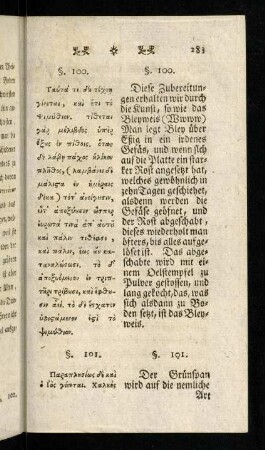 283
§. 100.
Ταῦτά τε δὴ τέχνῃ
γίνεται, καὶ ἔτι τὸ
ψιμύθιον. τίθεται
γὰρ μόλυβδος ὑπὲρ
ὄξους ἐν πίθοις, ὅταν
δὲ λάβῃ πάχος
πλῆθος, (λαμβάνει δὲ
μάλιστα ἐν ἡμέραις
δέκα) τότ᾽ ἀνοίγουσιν,
εἶτ᾽ ἀποξύουσιν ὥσπερ
εὐρῶτά τινα ἀπ᾽ αὐτῆ
καὶ πάλιν τιθέασι,
καὶ πάλιν, ἕως ἂν κα-
ταναλώσωσι. τὸ δ᾽
ἀποξυόμενον ἐν τριπ-
τῆρι τρίβουσι, καὶ
ἀεί. τὸ δ᾽ ἔσχατον
ὑφιστάμενον ἐςὶ τὸ
ψιμύθιον.
§. 101.
Παραπλησίως δὲ καὶ
ὁ ἰὸς γίνεται. Χαλκὸς
§. 100.
Diese Zubereitun-
gen erhalten wir durch
die Kunst, so wie das
Bleyweis (Wwww)
Man legt Bley über
Eßig in ein irdenes
Gefäs, und wenn sich
auf die Platte ein star-
ker Rost angesetzt hat,
welches gewöhnlich in
zehn Tagen geschiehet,
alsdenn werden die
Gefäße geöfnet, und
der Rost abgeschabt,
dieses wiederholt man
öfters, bis alles aufge-
löset ist. Das abge-
schabte wird mit ei-
nem Oelstempfel zu
Pulver gestossen, und
lang gekocht, das, was
sich alsdann zu Bo-
den setzt, ist das Bley-
weis.
§. 101.
Der Grünspan
wird auf die nemliche
Art